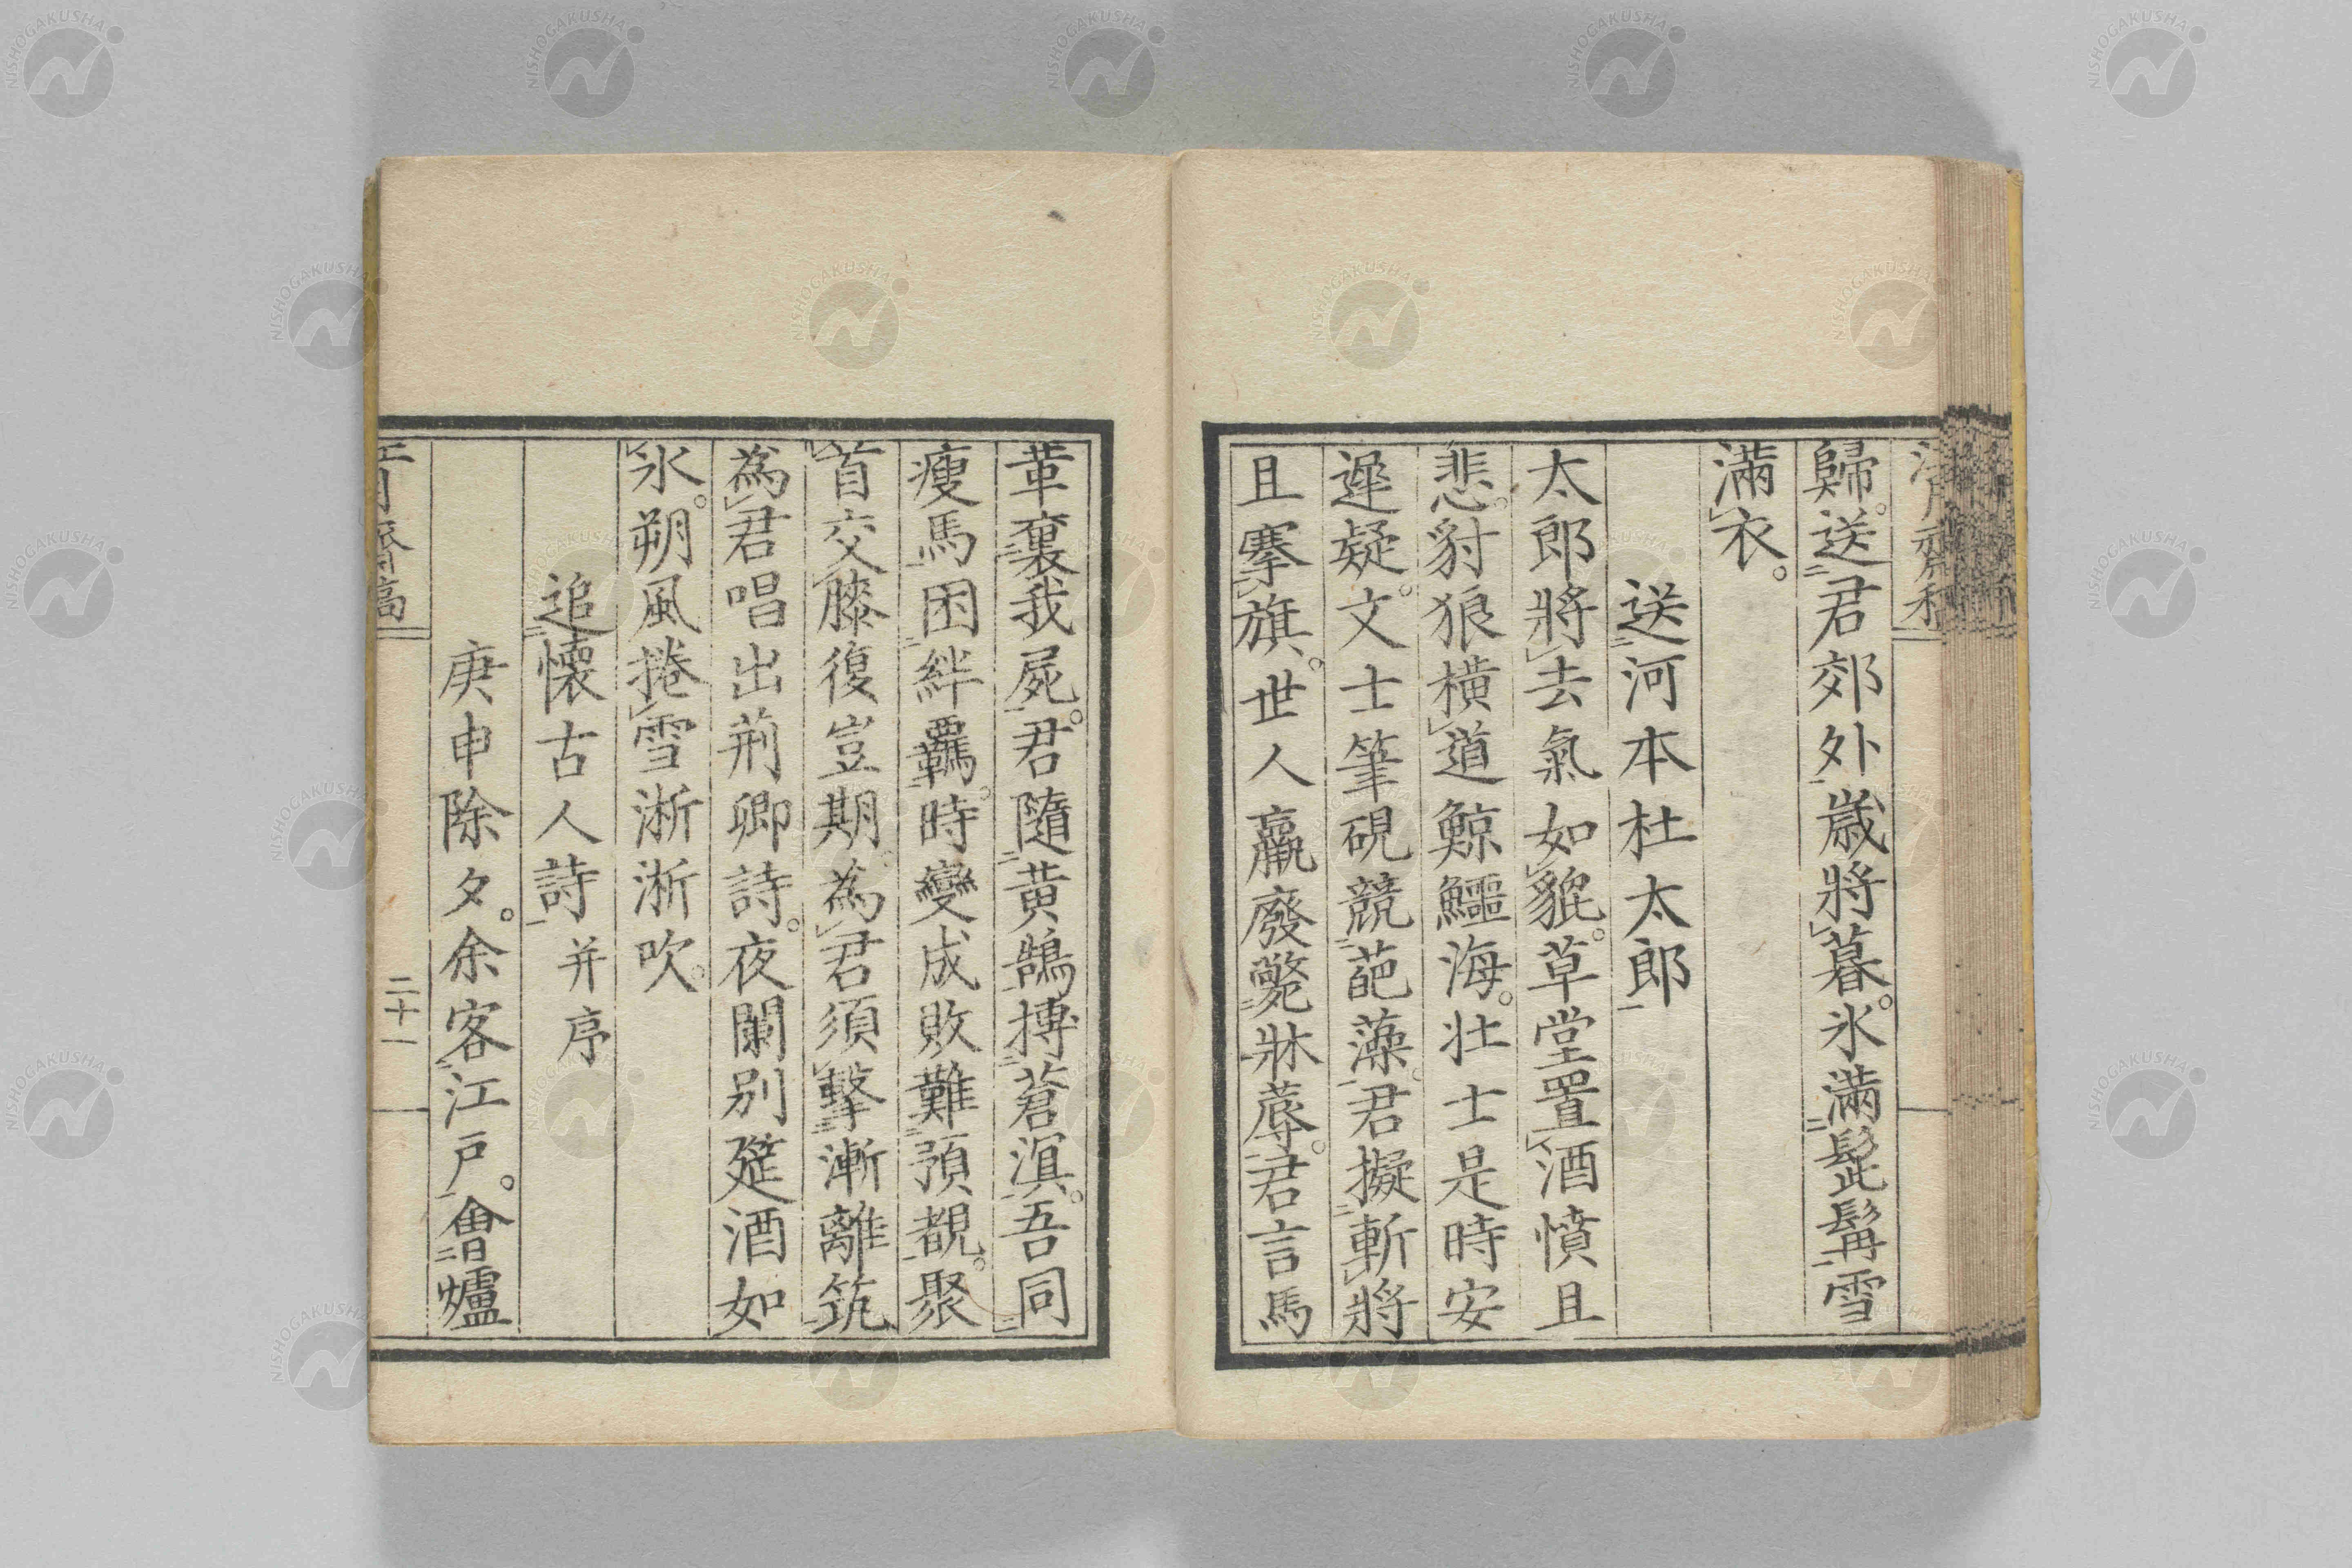 歸。送君郊外歲將暮。氷滿髭髯雪
滿衣。
送河本杜太郎
太郎將去氣如貔。草堂置酒憤且
悲。豺狼橫道鯨鱷海。壯士是時安
遲疑。文士筆硯競葩藻。君擬斬將
且搴旗。世人羸廢斃牀蓐。君言馬
革裹我屍。君隨黃鵠摶蒼溟。吾同
瘦馬困絆羈。時變成敗難預覩。聚
首交膝復豈期。為君須擊漸離筑
為君唱出荊卿詩。夜闌別筵酒如
氷。朔風捲雪淅淅吹。
追懷古人詩并序
庚申除夕。余客江戶。會爐
二十一
NISHOGAKUSHA